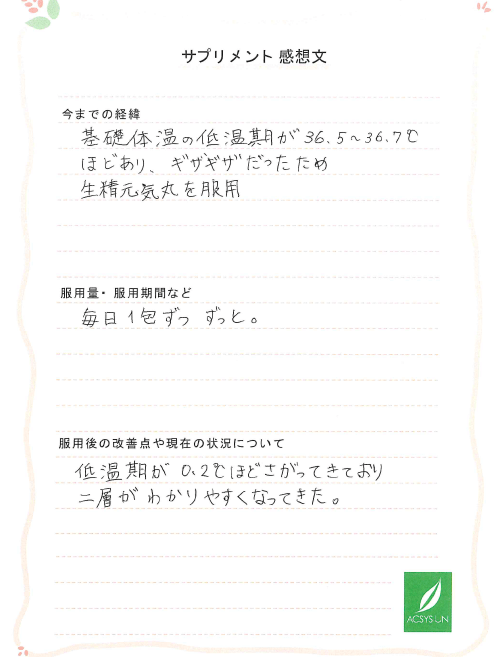 サプリメント 感想文
今までの経緯
基礎体温の低温期が36.5～36.7℃
ほどあり、ギザギザだったため
生精元気丸を服用
服用量・服用期間など
毎日1包ずつ ずっと。
服用後の改善点や現在の状況について
低温期が 0.2℃ほどさがってきており
二層が わかりやすくなってきた。
ACSYS UN